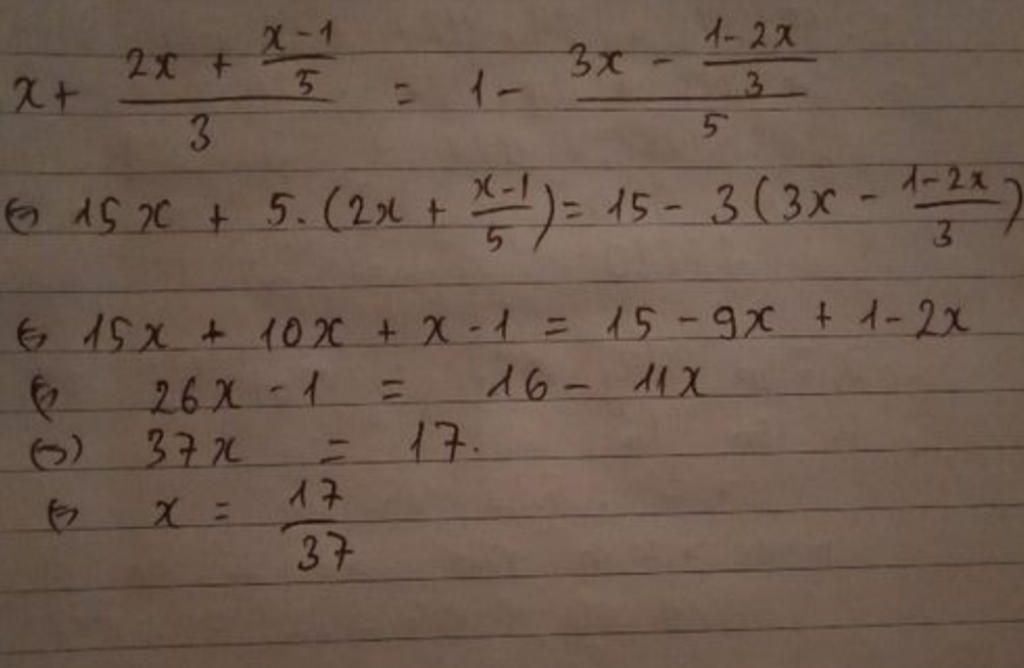 x + (2x + (x-1)/5)/3 = 1 - (3x - (1-2x)/3)/5
⇔ 15x + 5.(2x + (x-1)/5) = 15 - 3(3x - (1-2x)/3)
⇔ 15x + 10x + x - 1 = 15 - 9x + 1 - 2x
⇔ 26x - 1 = 16 - 11x
⇔ 37x = 17.
⇔ x = 17/37